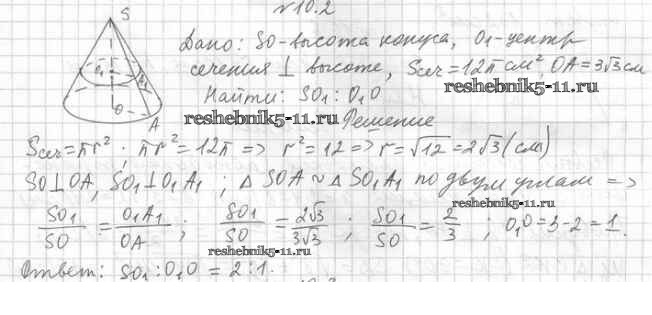 №10.2
S
O₁
A₁
O
A
Дано: SO-высота конуса, O₁-центр
сечения ⊥ высоте, Sсеч=12π см², OA=3√3 см
Найти: SO₁ : O₁O
reshebnik5-11.ru
reshebnik5-11.ru
Решение
Sсеч=πr²; πr²=12π => r²=12 => r=√12=2√3(см)
SO⊥OA, SO₁⊥O₁A₁; △SOA~△SO₁A₁ по двум углам =>
reshebnik5-11.ru
SO₁/SO = O₁A₁/OA; SO₁/SO = 2√3/3√3; SO₁/SO = 2/3; O₁O=3-2=1.
reshebnik5-11.ru
Ответ: SO₁:O₁O = 2:1.